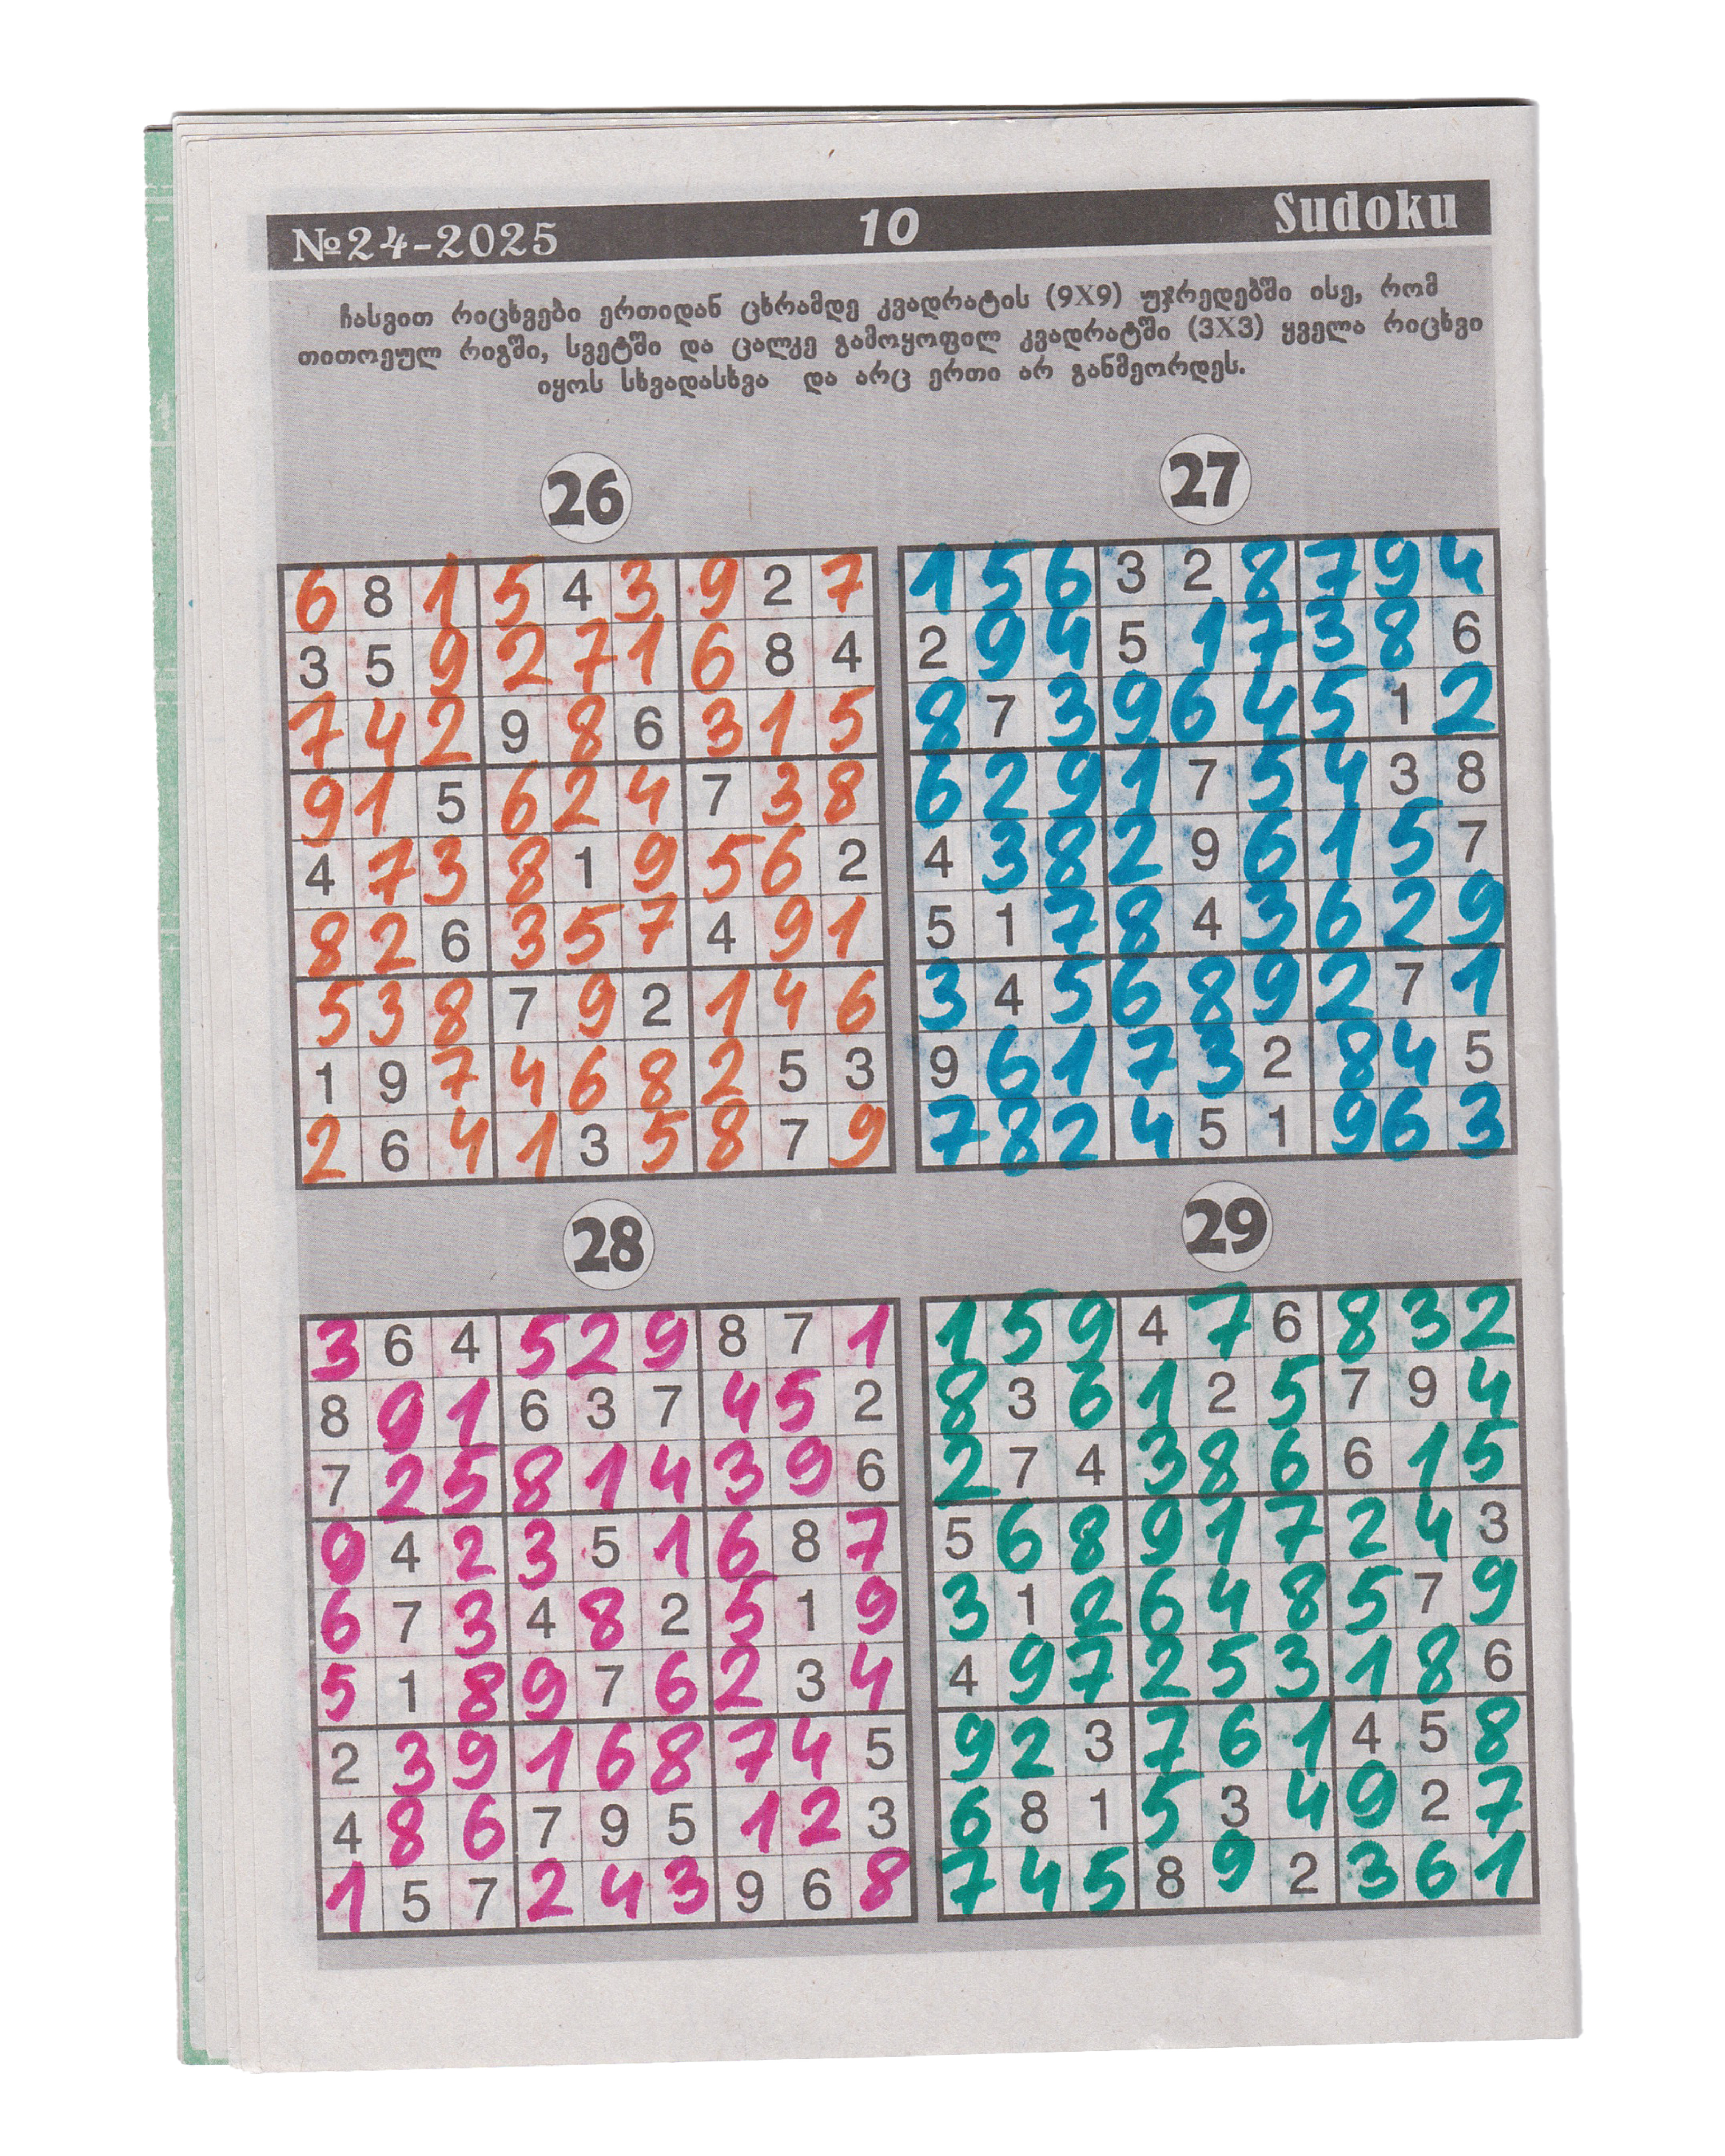 №24-2025 10 Sudoku
ჩასვით რიცხვები ერთიდან ცხრამდე კვადრატის (9X9) უჯრედებში ისე, რომ
თითოეულ რიგში, სვეტში და ცალკე გამოყოფილ კვადრატში (3X3) ყველა რიცხვი
იყოს სხვადასხვა და არც ერთი არ განმეორდეს.
26
6 8 1 5 4 3 9 2 7
3 5 9 2 7 1 6 8 4
7 4 2 9 8 6 3 1 5
9 1 5 6 2 4 7 3 8
4 7 3 8 1 9 5 6 2
8 2 6 3 5 7 4 9 1
5 3 8 7 9 2 1 4 6
1 9 7 4 6 8 2 5 3
2 6 4 1 3 5 8 7 9
27
1 5 6 3 2 8 7 9 4
2 9 4 5 1 7 3 8 6
8 7 3 9 6 4 5 1 2
6 2 9 1 7 5 4 3 8
4 3 8 2 9 6 1 5 7
5 1 7 8 4 3 6 2 9
3 4 5 6 8 9 2 7 1
9 6 1 7 3 2 8 4 5
7 8 2 4 5 1 9 6 3
28
3 6 4 5 2 9 8 7 1
8 9 1 6 3 7 4 5 2
7 2 5 8 1 4 3 9 6
9 4 2 3 5 1 6 8 7
6 7 3 4 8 2 5 1 9
5 1 8 9 7 6 2 3 4
2 3 9 1 6 8 7 4 5
4 8 6 7 9 5 1 2 3
1 5 7 2 4 3 9 6 8
29
1 5 9 4 7 6 8 3 2
8 3 6 1 2 5 7 9 4
2 7 4 3 8 6 6 1 5
5 6 8 9 1 7 2 4 3
3 1 2 6 4 8 5 7 9
4 9 7 2 5 3 1 8 6
9 2 3 7 6 1 4 5 8
6 8 1 5 3 4 9 2 7
7 4 5 8 9 2 3 6 1